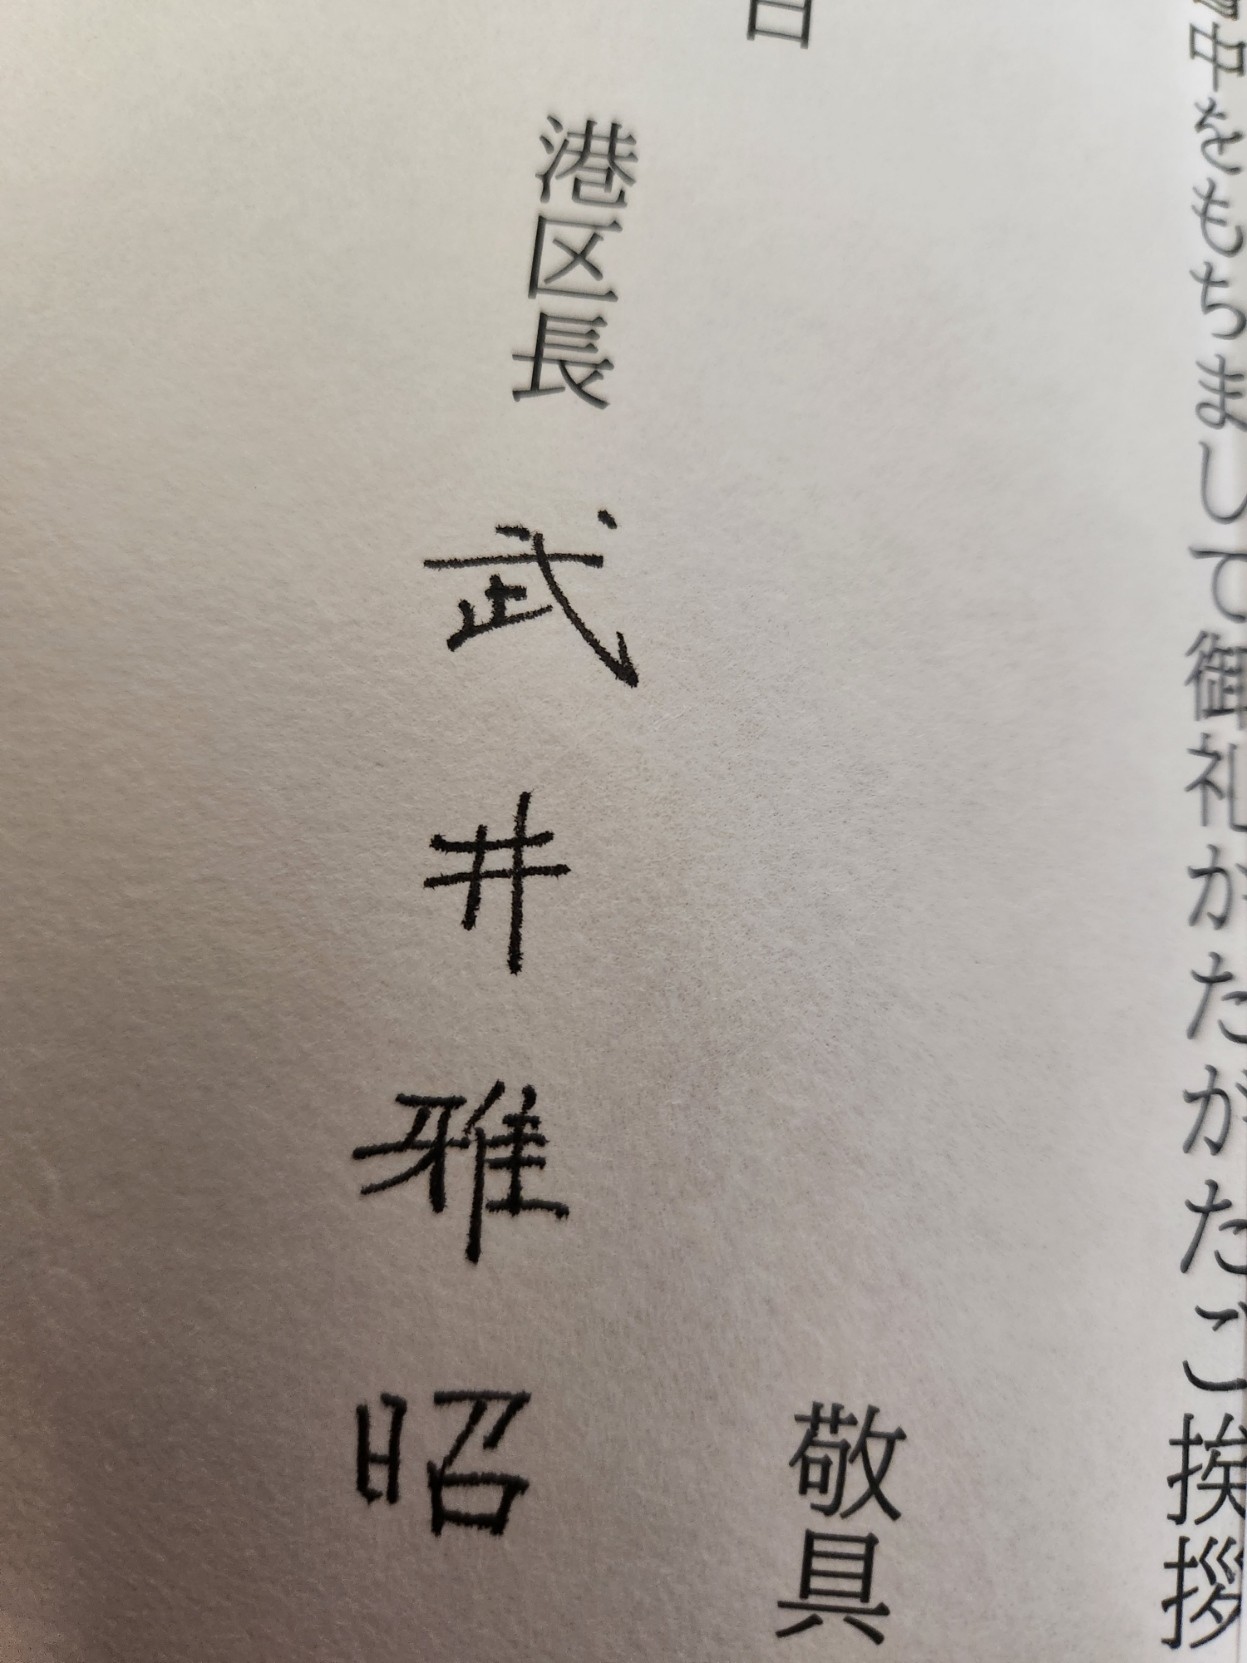 中をもちまして御礼かたがたご挨拶
敬具
日
港区長 武井雅昭